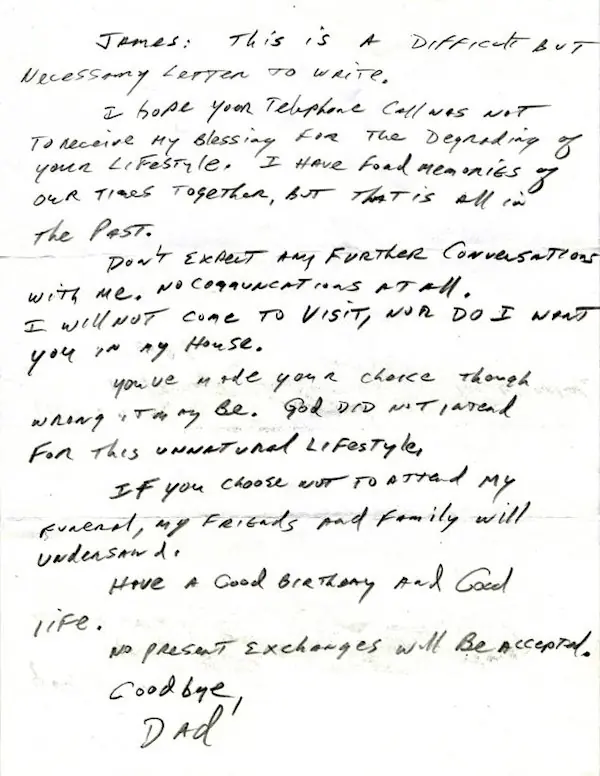 James: This is a Difficult But
Necessary Letter to write.
I hope your Telephone Call was not
To receive my Blessing For The Degrading of
your Lifestyle. I Have fond memories of
our Times Together, But That is All in
The Past.
Don't Expect Any Further Conversations
with me. No Communcations at all.
I will not come to Visit, nor do I want
you in my House.
You've made your choice though
wrong it may Be. God Did not intend
For this unnatural Lifestyle.
If you choose not to attend my
Funeral, my Friends and Family will
undersand.
Have a Good Birthday and Good
life.
No present exchanges will Be Accepted.
Goodbye,
Dad